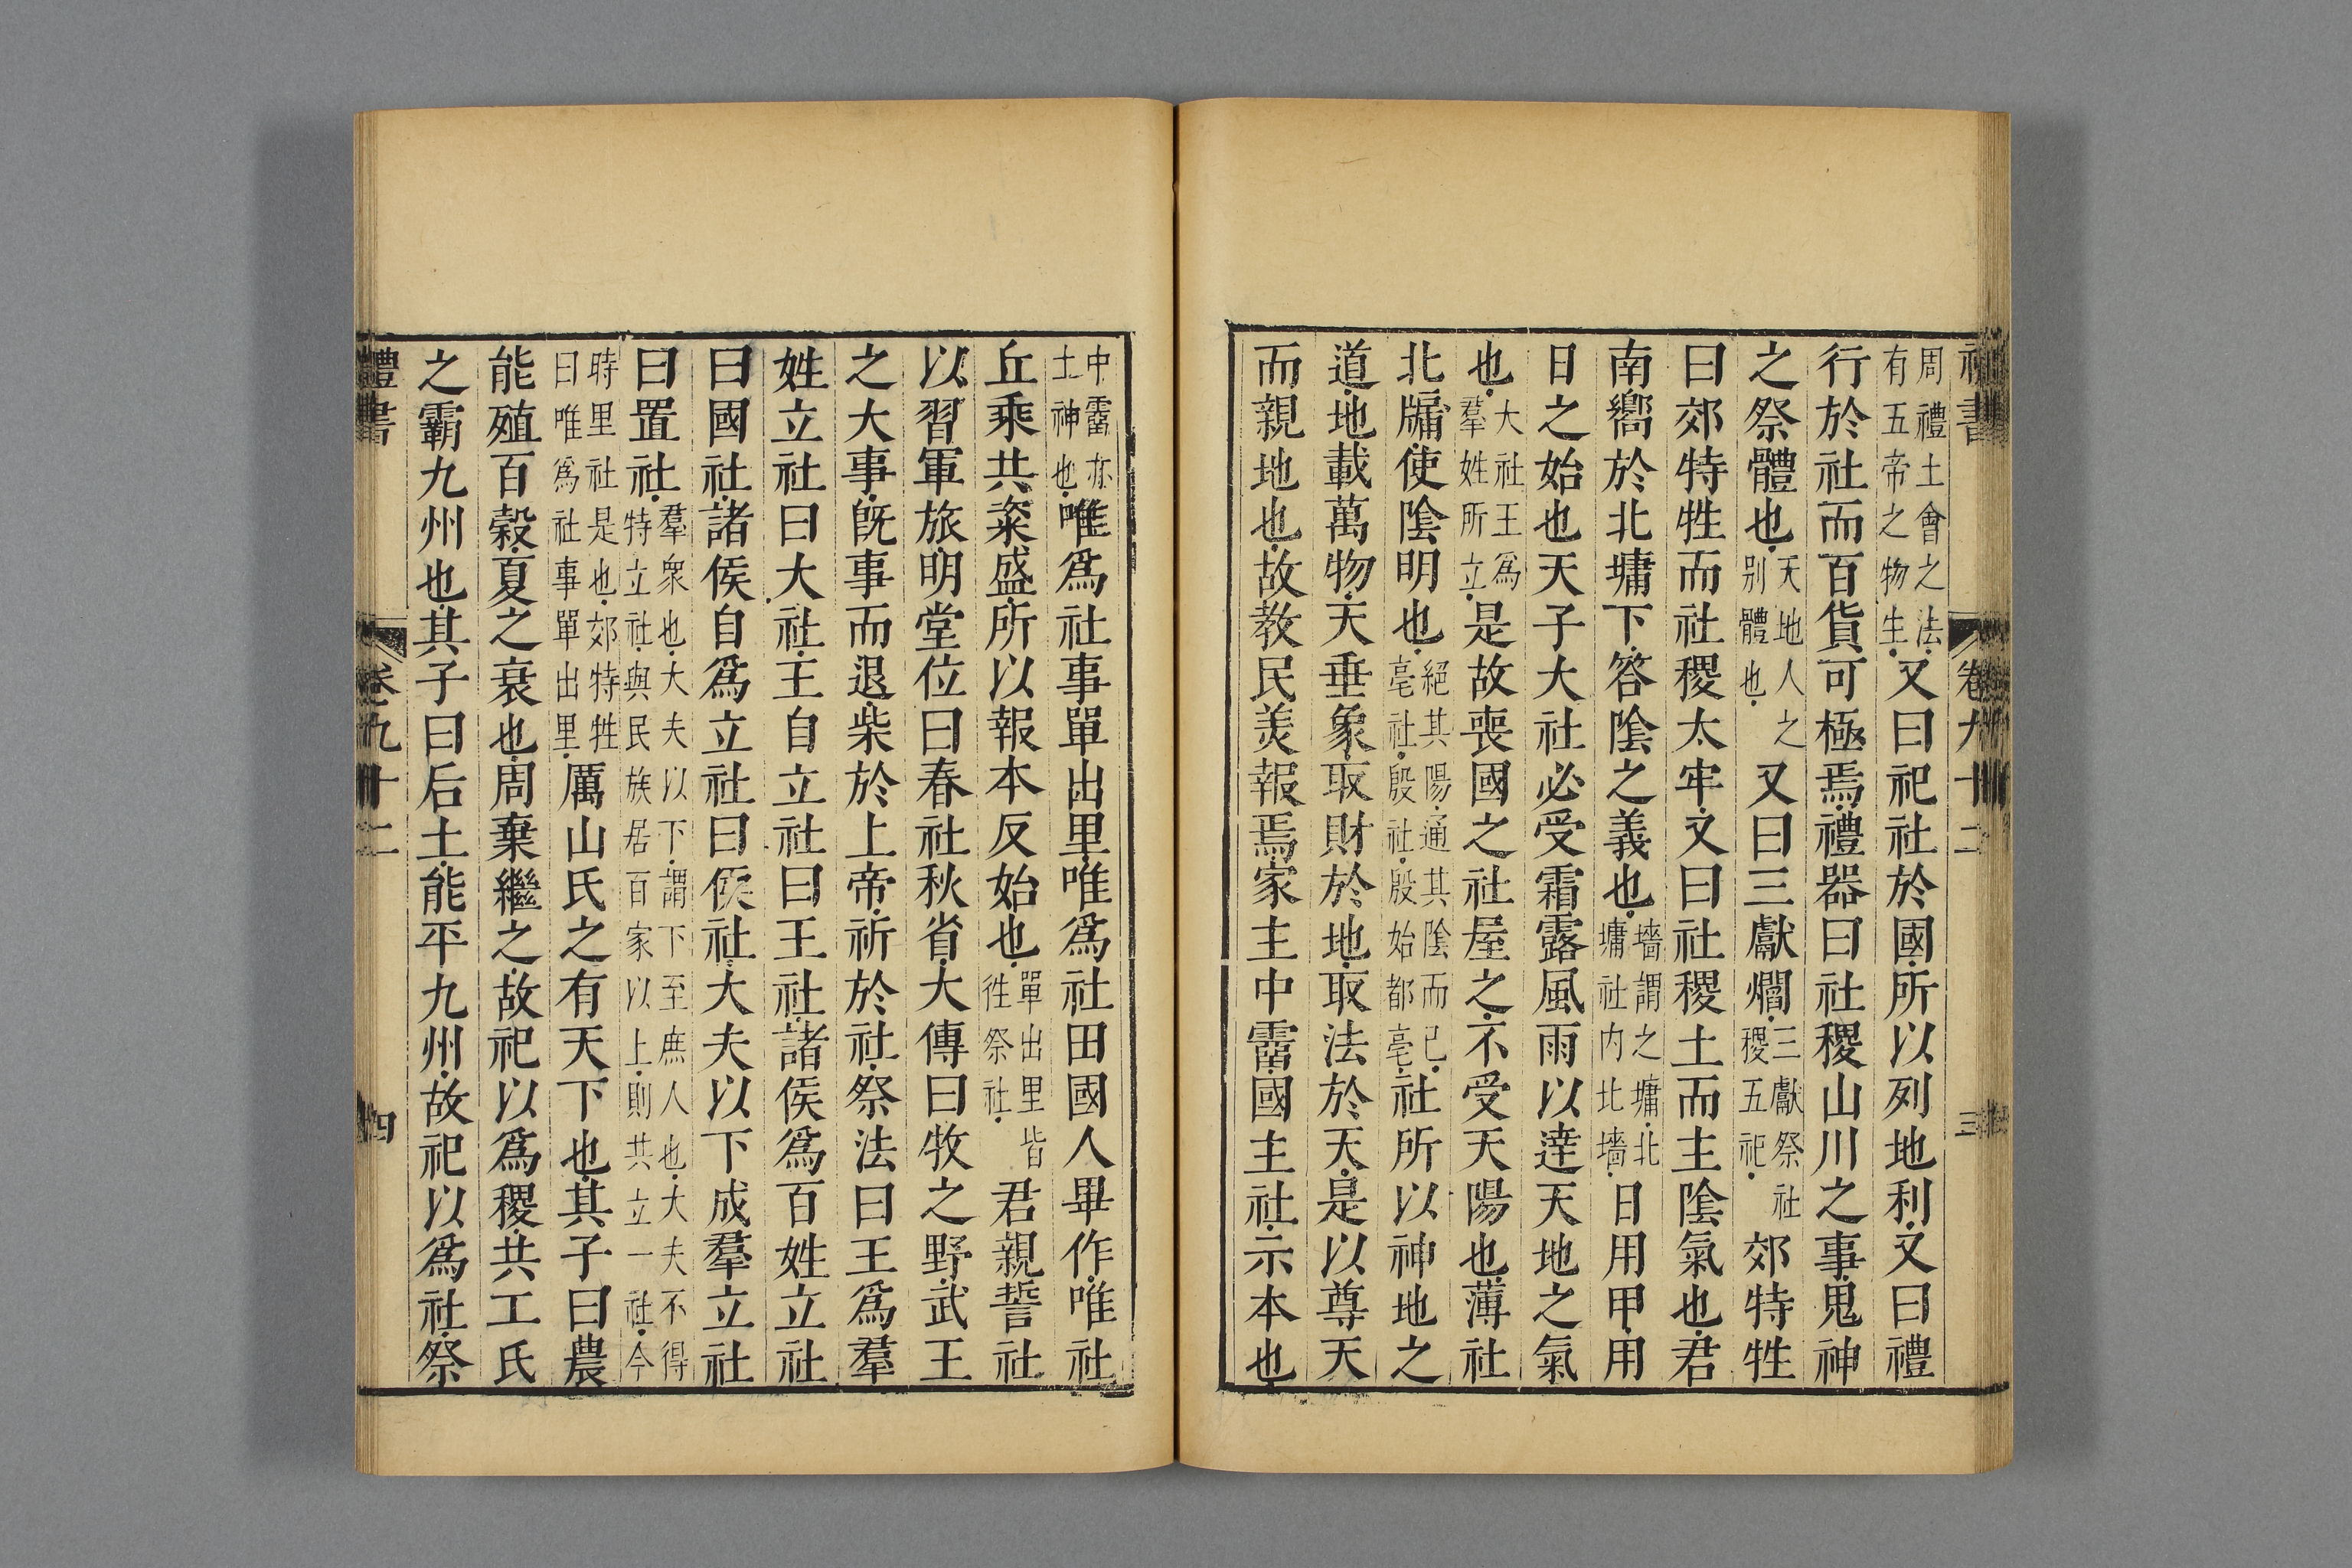 禮書 卷九十二 三
周禮土會之法有五帝之物生又曰祀社於國所以列地利又曰禮
行於社而百貨可極焉禮器曰社稷山川之事鬼神
之祭體也天地人之別體也又曰三獻爓三獻祭社稷五祀郊特牲
曰郊特牲而社稷太牢又曰社稷土而主陰氣也君
南嚮於北墉下答陰之義也墻謂之墉北墉社内北墻日用甲用
日之始也天子大社必受霜露風雨以達天地之氣
也大社王為羣姓所立是故喪國之社屋之不受天陽也薄社
北牖使陰明也絕其陽通其陰而已亳社殷社殷始都亳社所以神地之
道地載萬物天垂象取財於地取法於天是以尊天
而親地也故教民美報焉家主中霤國主社示本也
中霤亦土神也唯爲社事單出里唯爲社田國人畢作唯社
丘乘共粢盛所以報本反始也單出里皆徃祭社君親誓社
以習軍旅明堂位曰春社秋省大傳曰牧之野武王
之大事旣事而退柴於上帝祈於社祭法曰王爲羣
姓立社曰大社王自立社曰王社諸侯爲百姓立社
曰國社諸侯自爲立社曰侯社大夫以下成羣立社
曰置社羣衆也大夫以下謂下至庶人也大夫不得特立社與民族居百家以上則共立一社今
時里社是也郊特牲曰唯爲社事單出里厲山氏之有天下也其子曰農
能殖百穀夏之衰也周棄繼之故祀以爲稷共工氏
之霸九州也其子曰后土能平九州故祀以爲社祭
禮書 卷九十二 四